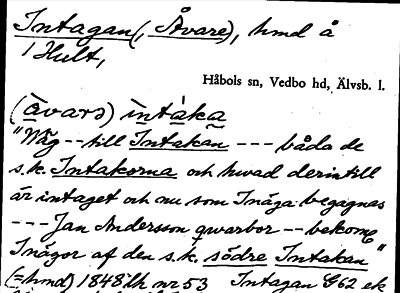 Intagan (, Åvare), hmd å
1 Hult,
Håbols sn, Vedbo hd, Älvsb. l.
(àvars) ìntáka
"Wäg -- till Intakan --- båda de
s.k. Intakorna och hwad derintill
är intaget och nu som Inäga begagnas
--- Jan Andersson qwarbor -- bekom̅e
Inägor af den s.k. södre Intakan"
(=hmd) 1848 lh nr 53 Intagan G62 ek